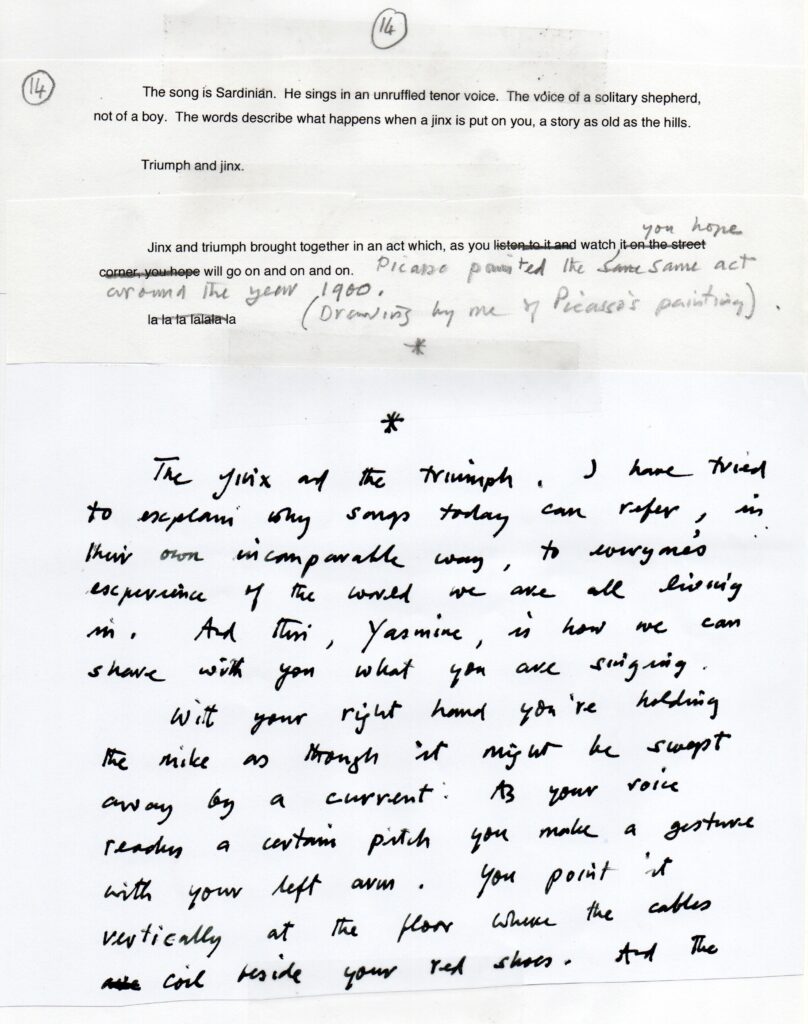 14
14
The song is Sardinian. He sings in an unruffled tenor voice. The voice of a solitary shepherd,
not of a boy. The words describe what happens when a jinx is put on you, a story as old as the hills.
Triumph and jinx.
you hope
Jinx and triumph brought together in an act which, as you listen to it and watch it on the street
corner, you hope will go on and on and on. Picasso painted the same same act
around the year 1900.
(Drawing by me of Picasso's painting).
la la la lalala la
*
*
The jinx and the triumph. I have tried
to explain why songs today can refer, in
their own incomparable way, to everyone's
experience of the world we are all living
in. And this, Yasmine, is how we can
share with you what you are singing.
With your right hand you're holding
the mike as though it might be swept
away by a current. As your voice
reaches a certain pitch you make a gesture
with your left arm. You point it
vertically at the floor where the cables
coil beside your red shoes. And the